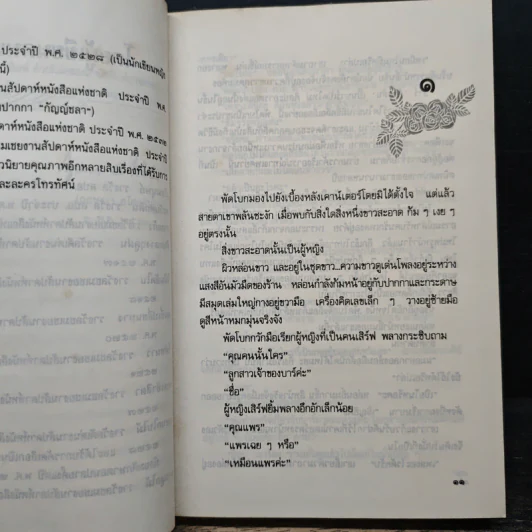 ประจำปี พ.ศ. ๒๕๒๘ (เป็นนักเขียนหญิง
นี้)
านสัปดาห์หนังสือแห่งชาติ ประจำปี พ.ศ.
ปากกา "กัญญ์ชลา")
ดาห์หนังสือแห่งชาติ ประจำปี พ.ศ. ๒๕๓๒
มเชยงานสัปดาห์หนังสือแห่งชาติ ประจำปี
วนิยายคุณภาพอีกหลายสิบเรื่องที่ได้รับการ
และละครโทรทัศน์
๑
พัดโบกมองไปยังเบื้องหลังเคาน์เตอร์โดยมิได้ตั้งใจ แต่แล้ว
สายตาเขาพลันชะงัก เมื่อพบกับสิ่งใดสิ่งหนึ่งขาวสะอาด ก้ม ๆ เงย ๆ
อยู่ตรงนั้น
สิ่งขาวสะอาดนั้นเป็นผู้หญิง
ผิวหล่อนขาว และอยู่ในชุดขาว...ความขาวดูเด่นโพลงอยู่ระหว่าง
แสงสีอันมัวมืดของร้าน หล่อนกำลังก้มหน้าอยู่กับปากกาและกระดาษ
มีสมุดเล่มใหญ่กางอยู่ขวามือ เครื่องคิดเลขเล็ก ๆ วางอยู่ซ้ายมือ
ดูสีหน้าหมกมุ่นจริงจัง
พัดโบกกวักมือเรียกผู้หญิงที่เป็นคนเสิร์ฟ พลางกระซิบถาม
"คุณคนนั้นใคร"
"ลูกสาวเจ้าของบาร์ค่ะ"
"ชื่อ"
ผู้หญิงเสิร์ฟยิ้มพลางอึกอักเล็กน้อย
"คุณแพร"
"แพรเฉย ๆ หรือ"
"เหมือนแพรค่ะ"
๑๑